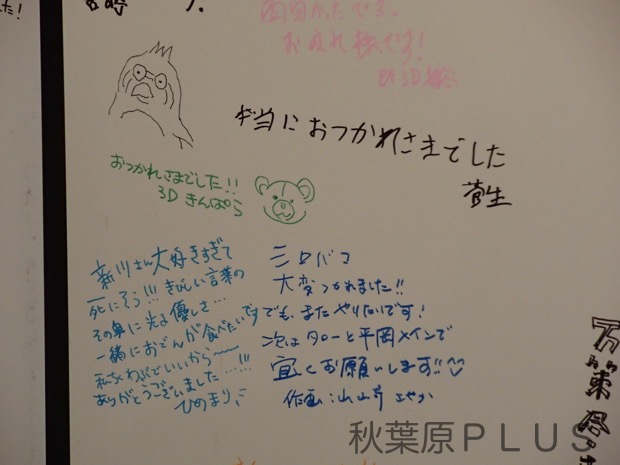 た!
面白かったです。
お疲れ様です!
本当におつかれさまでした
菅生
おつかれさまでした!!
3D きんぱら
新川さん大好きすぎて
死にそう!!! きびしい言葉の
その奥に光る優しさ…
一緒におでんが食べたいです
私ちくわぶでいいから~~
ありがとうございました…!!!
ひめまり
三ロバコ
大変つかれました!!
でも、またやりたいです!
次はタローと平岡メインで
宜しくお願いします!!
作画:山山芹 さやか
万策尽き
秋葉原PLUS